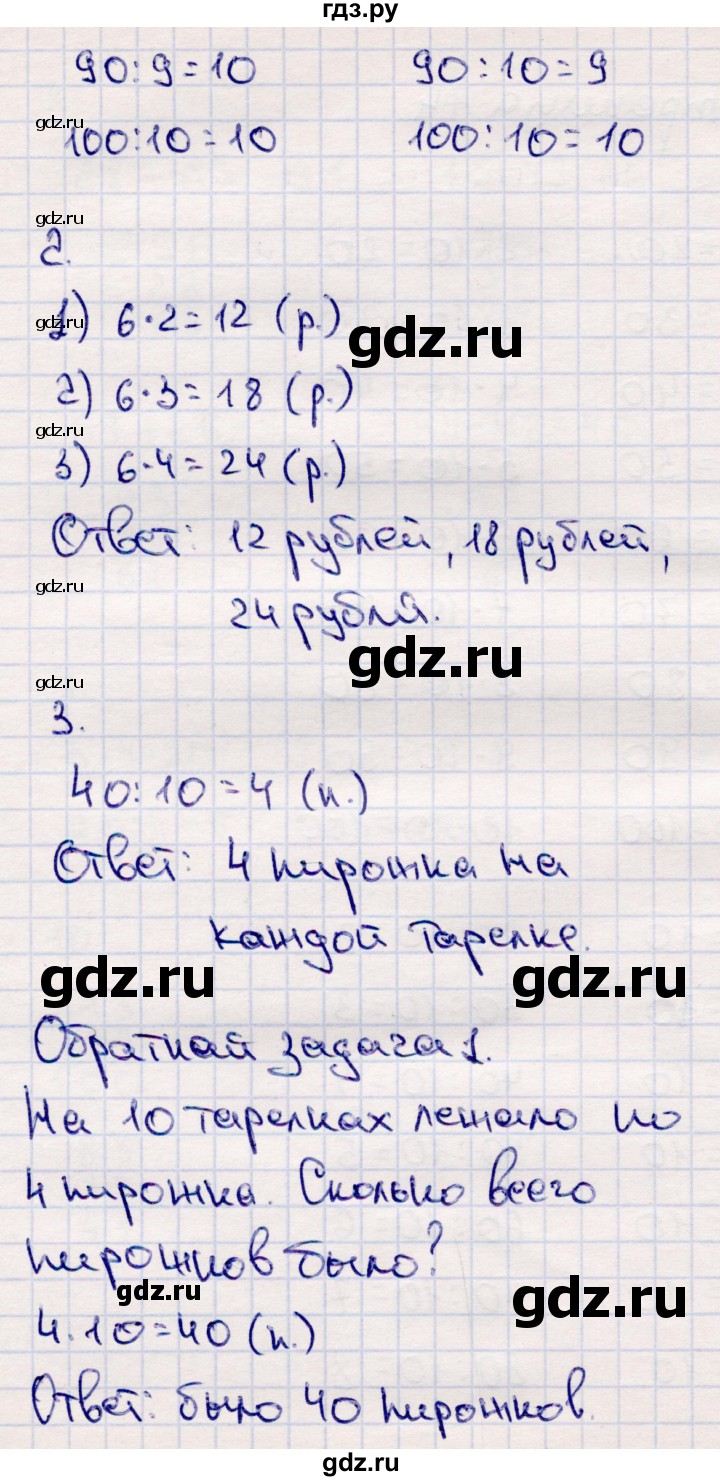 гдз.ру
90:9=10 90:10=9
gdz.ru
100:10=10 100:10=10
gdz.ru
2.
gdz.ru
1) 6·2=12 (р.)
gdz.ru
2) 6·3=18 (р.)
gdz.ru
3) 6·4=24 (р.)
Ответ: 12 рублей, 18 рублей,
gdz.ru
24 рубля.
gdz.ru
gdz.ru
3.
40:10=4 (п.)
Ответ: 4 пирожка на
каждой тарелке.
gdz.ru gdz.ru
Обратная задача 1.
На 10 тарелках лежало по
4 пирожка. Сколько всего
пирожков было?
gdz.ru gdz.ru
4·10=40 (п.)
Ответ: было 40 пирожков.
gdz.ru